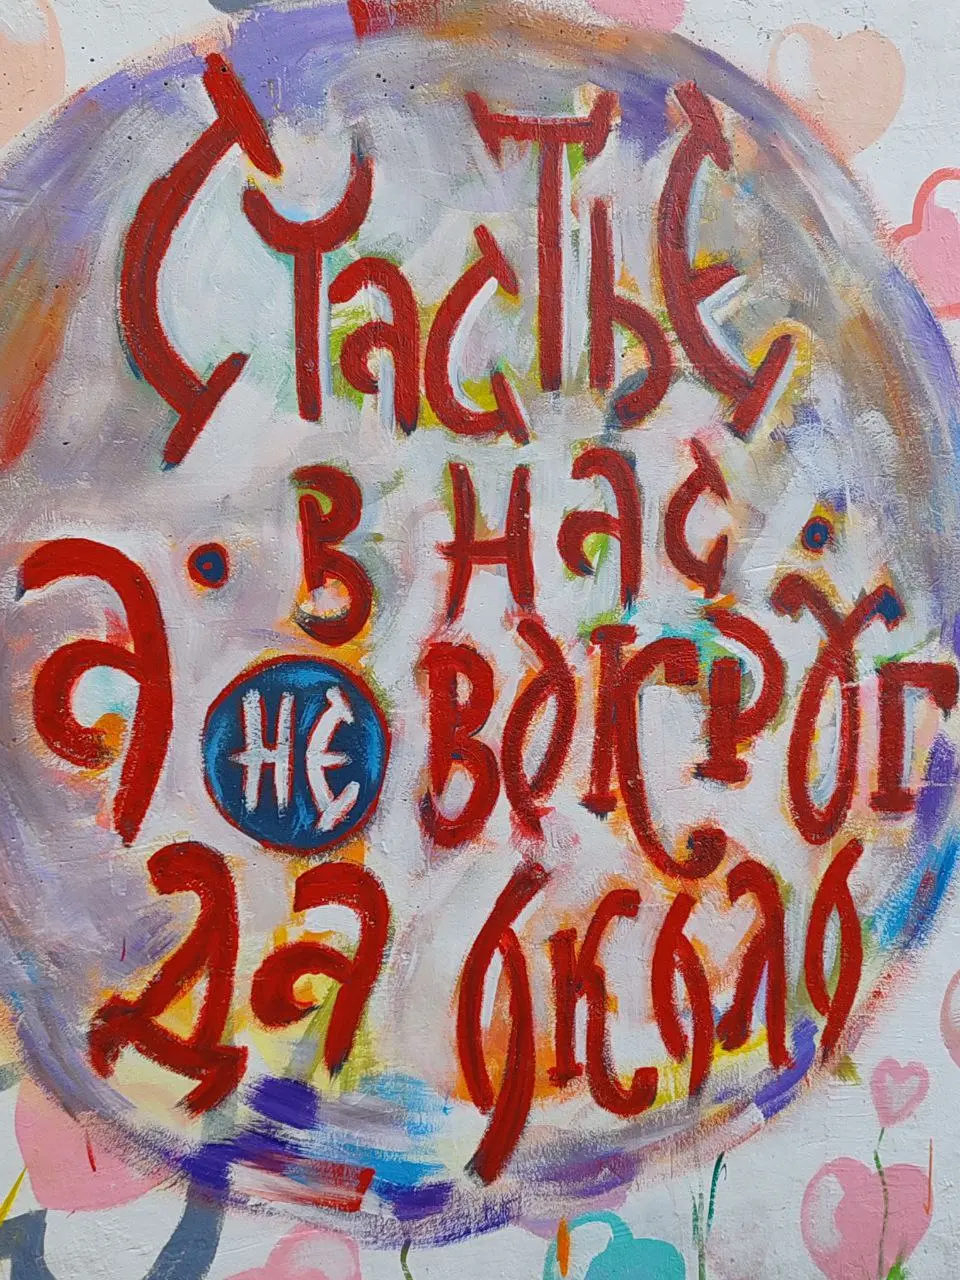 Счастье
в нас
а не вокруг
да около